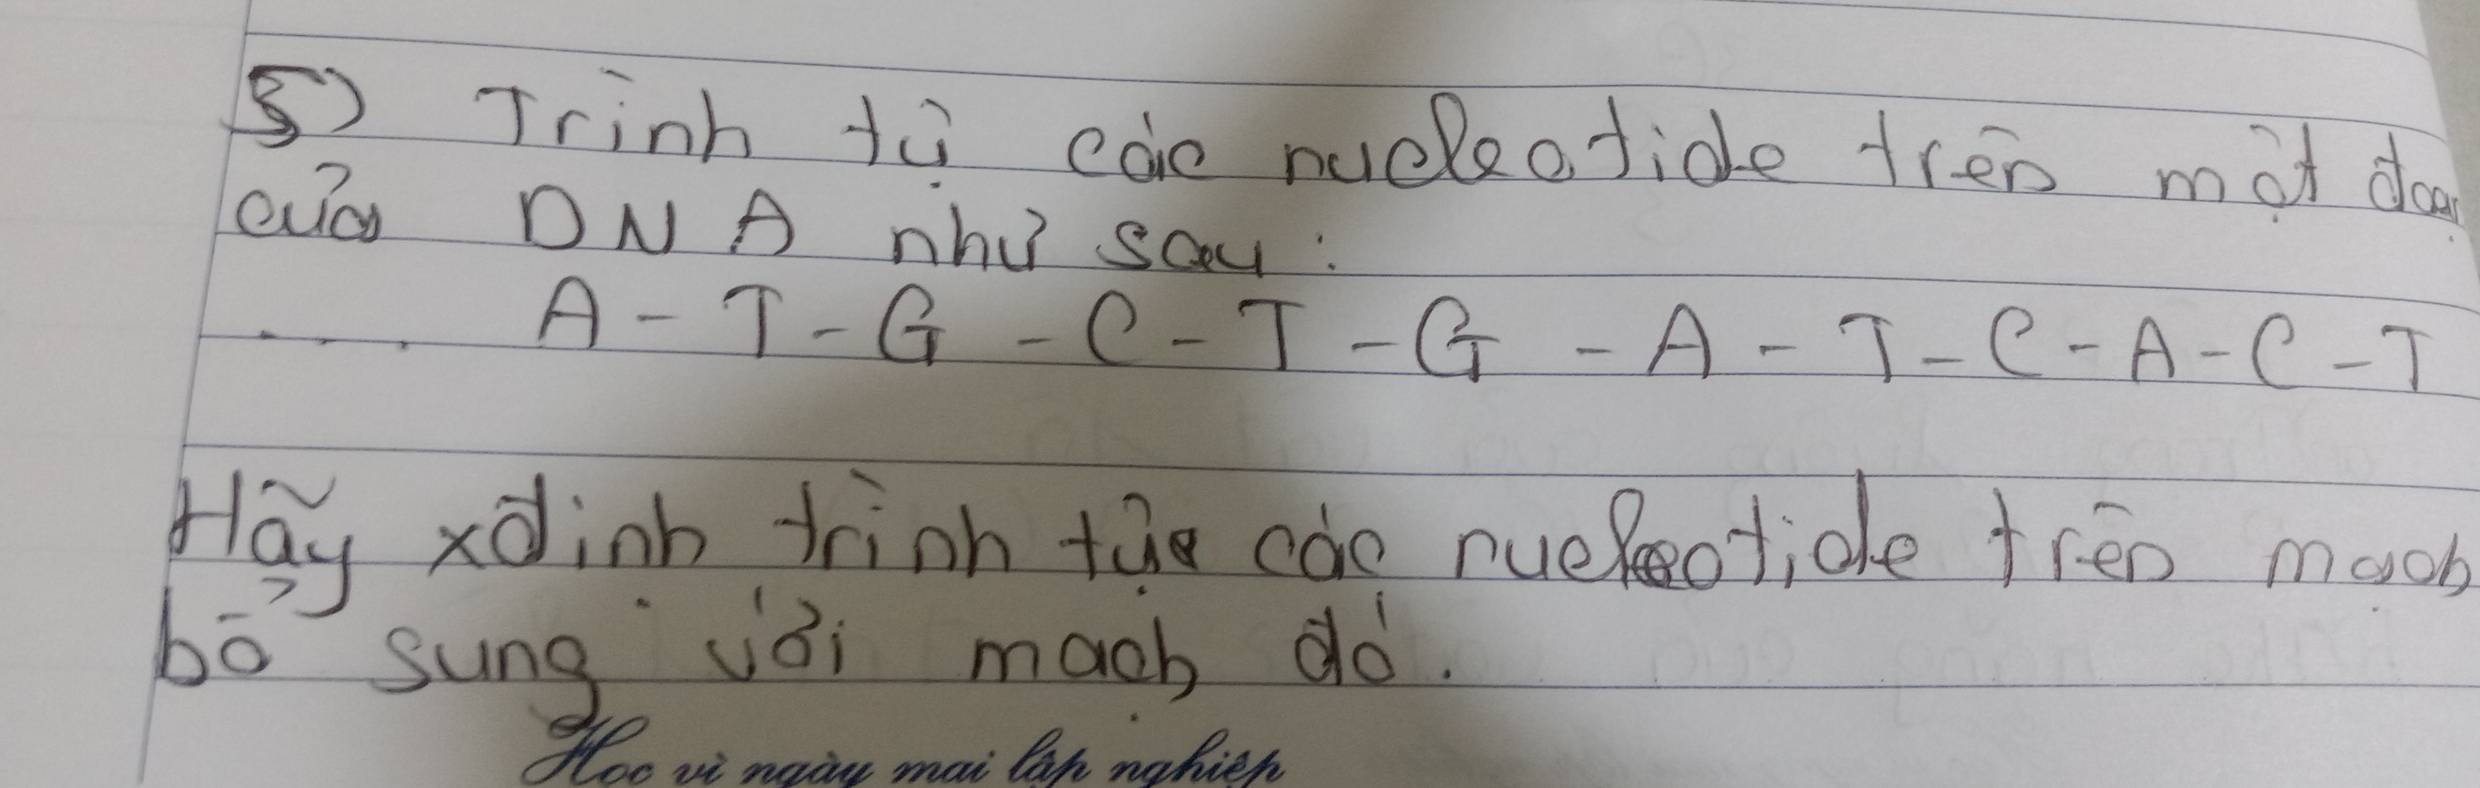 5) Trình tự các nucleotide trên một đoạn
của DNA như sau:
.... A - T - G - C - T - G - A - T - C - A - C - T
Hãy xđịnh trình tự các nucleotide trên mạch
bổ sung với mạch đó.
Học vì ngày mai lập nghiệp